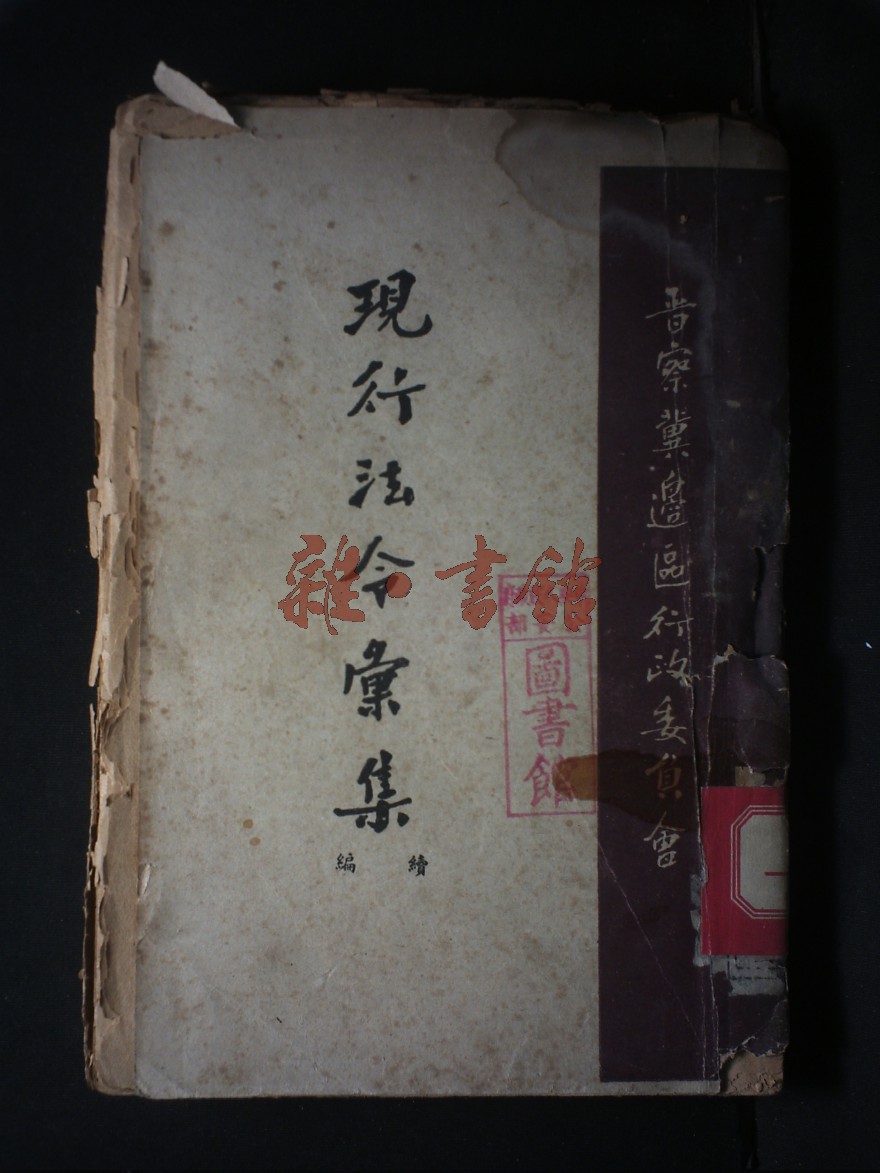 晋察冀邊區行政委員會
現行法令彙集
續編
雜·書館
部
圖書館